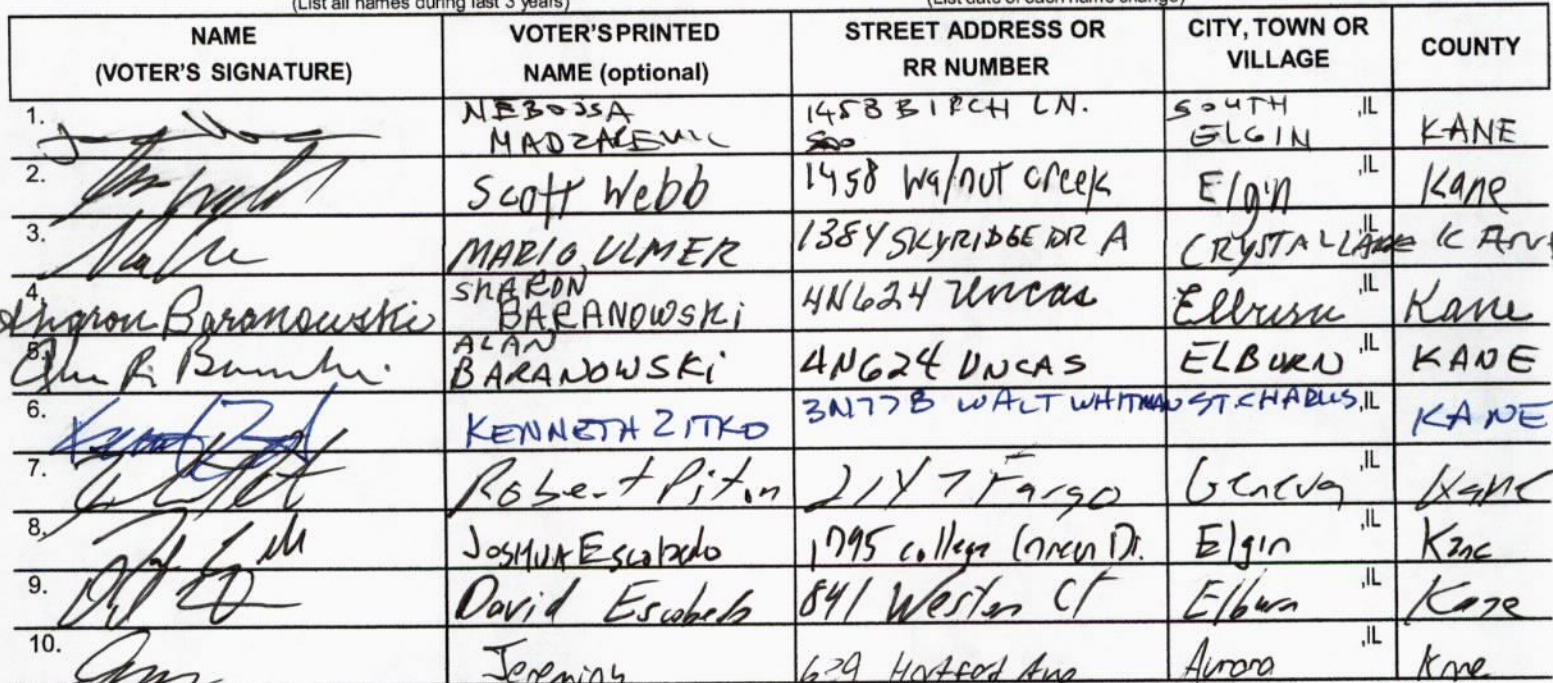 (List all names during last 3 years) (List date of each name change)
NAME (VOTER'S SIGNATURE) VOTER'S PRINTED NAME (optional) STREET ADDRESS OR RR NUMBER CITY, TOWN OR VILLAGE COUNTY
1. NEBOJSA 1458 BIRCH LN. SOUTH ,IL
ELGIN KANE
2. Scott Webb 1458 Walnut Creek Elgin ,IL Kane
3. MARIO ULMER 1384 SKYRIDGE DR A CRYSTAL LAKE ,IL KANE
4. Sharon Baranowski SHARON BARANOWSKI 4N624 Uncas Elburn ,IL Kane
5. ALAN BARANOWSKI 4N624 UNCAS ELBURN ,IL KANE
6. KENNETH ZITKO WALT WHITMAN ST. CHARLES, ,IL KANE
7. Robert 2147 Fargo Geneva ,IL Kane
8. JOSHUA Escobedo 1795 college Green Dr. Elgin ,IL Kane
9. David Escobedo 841 Weston Ct Elburn ,IL Kane
10. Jeremiah 629 Hartford Ave Aurora ,IL Kane